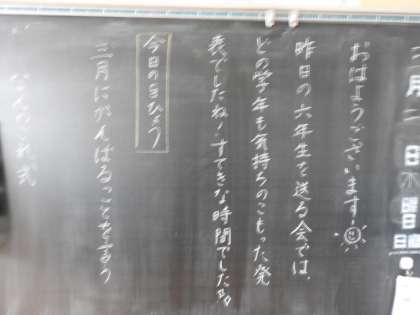 三月二日(水)曜日
日直
おはようございます!
昨日の六年生を送る会では、
どの学年も気持ちのこもった発
表でしたね!すてきな時間でした。
今日のもくひょう
三月にがんばることを言う